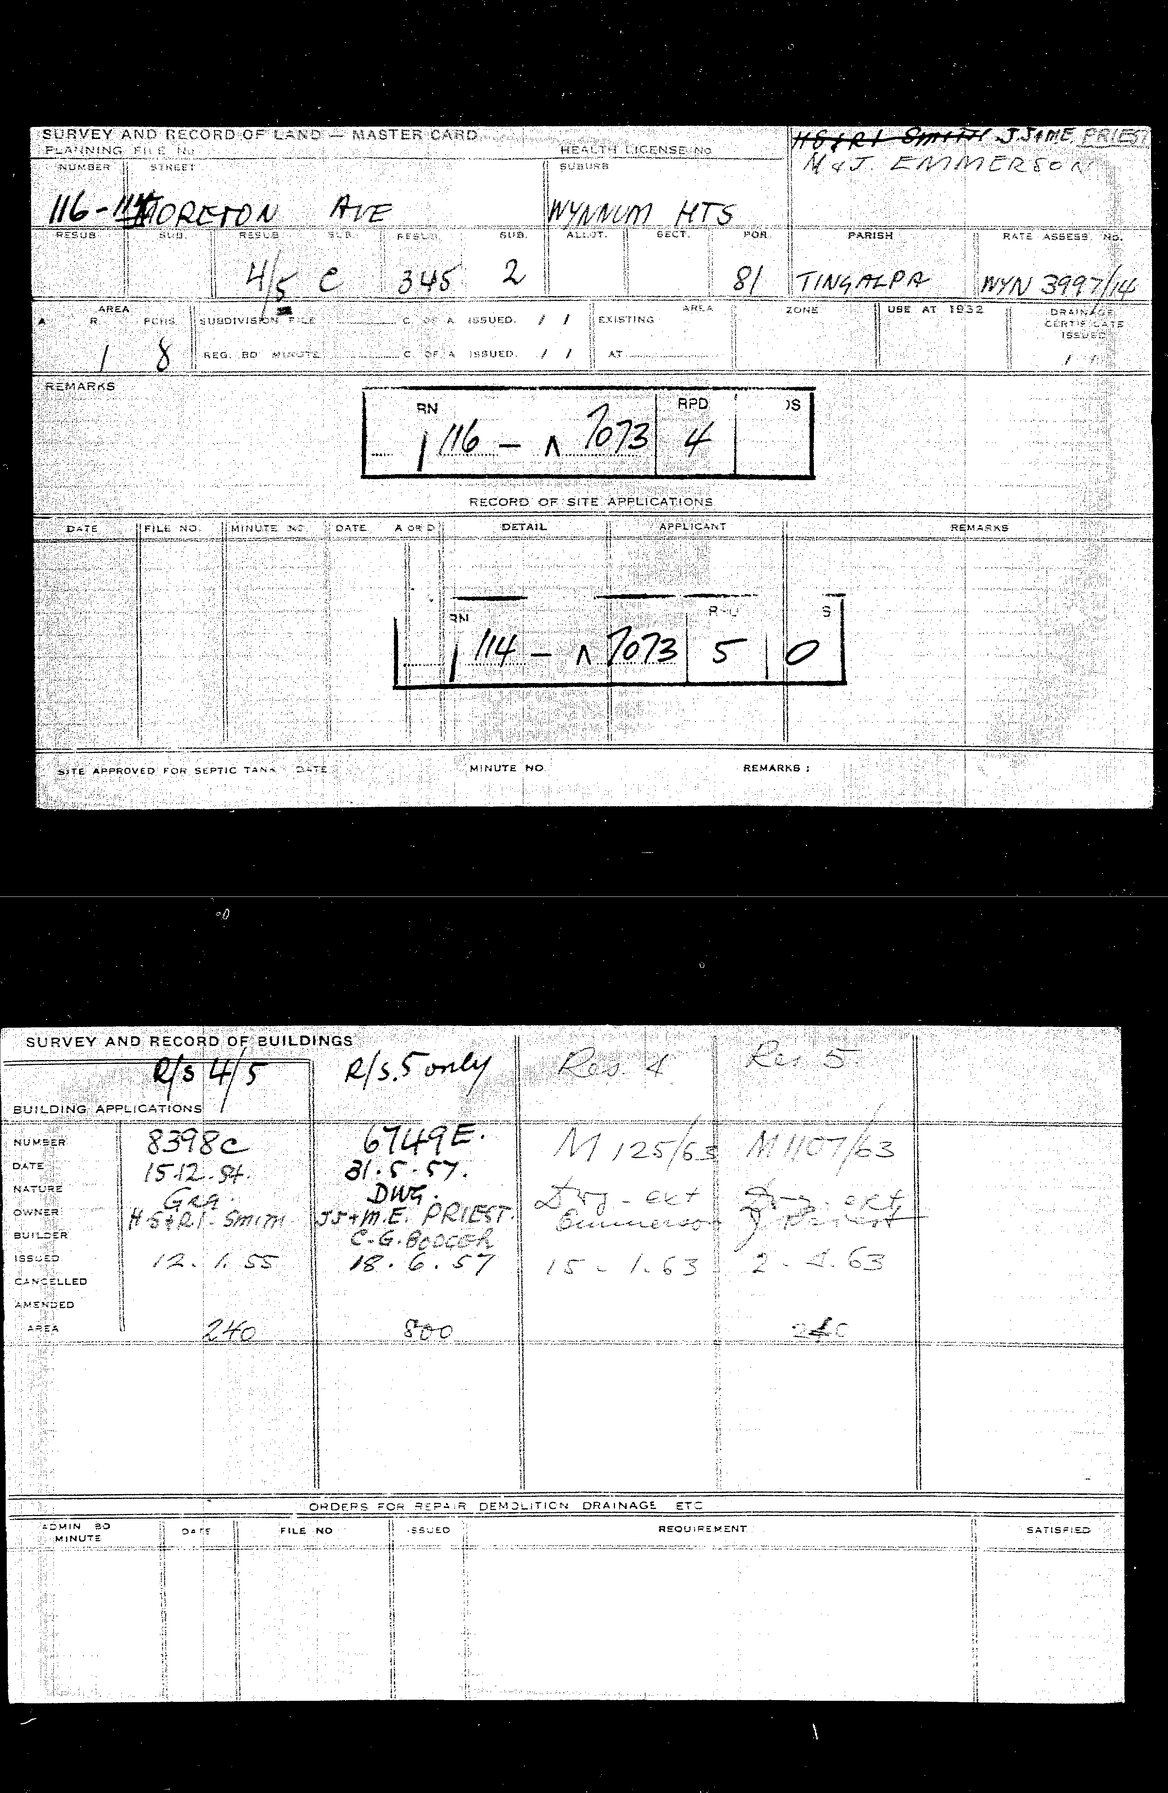 SURVEY AND RECORD OF LAND — MASTER CARD
H S & R I Smith J J & M E. PRIEST
PLANNING FILE No
HEALTH LICENSE No
M & J. EMMERSON
NUMBER STREET SUBURB
116-114 MORETON AVE WYNNUM HTS
RESUB SUB. RESUB SUB. RESUB. SUB. ALLOT. SECT. POR. PARISH RATE ASSESS. No.
4/5 C 345 2 81 TINGALPA WYN 3997/14
AREA AREA ZONE USE AT 1932 DRAINAGE CERTIFICATE ISSUED
A R. PCHS SUBDIVISION FILE C OF A ISSUED. / / EXISTING
1 8 REG. BD MINUTE C OF A ISSUED. / / AT / /
REMARKS
RN RPD DS
/ 116 - ∧ 7073 4
RECORD OF SITE APPLICATIONS
DATE FILE NO. MINUTE NO. DATE A OR D DETAIL APPLICANT REMARKS
RN S
/ 114 - ∧ 7073 5 0
SITE APPROVED FOR SEPTIC TANK DATE MINUTE NO REMARKS :
SURVEY AND RECORD OF BUILDINGS
R/s 4/5 R/s.5 only Res. 4 Res 5
BUILDING APPLICATIONS
NUMBER 8398C 6749E. M 125/63 M1107/63
DATE 15.12.54. 31.5.57.
NATURE Gra. DWG. Dwg - ext Dwg. ext
OWNER H S & R I. Smith JJ + M.E. PRIEST. Emmerson J Priest
BUILDER C.G.
ISSUED 12.1.55 18.6.57 15-1.63 2.4.63
CANCELLED
AMENDED
AREA 240 800
ORDERS FOR REPAIR DEMOLITION DRAINAGE ETC
ADMIN BD MINUTE DATE FILE NO ISSUED REQUIREMENT SATISFIED